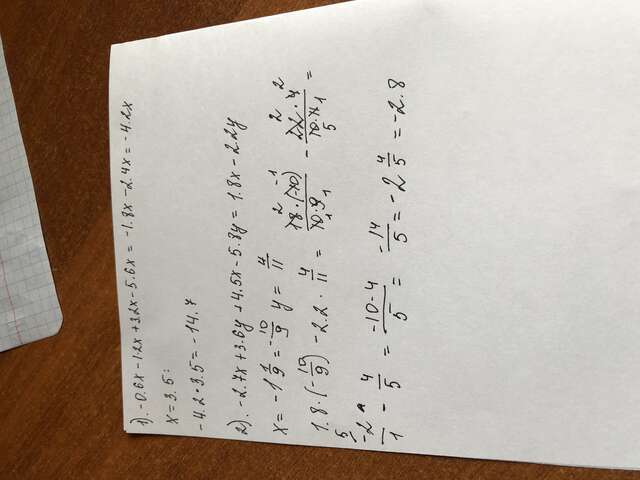 1). -0.6x-1.2x+3.2x-5.6x=-1.8x-2.4x=-4.2x
x=3.5:
-4.2*3.5=-14.7
2). -2.7x+3.6y+4.5x-5.8y=1.8x-2.2y
x=-1 1/9=-10/9 y=4/11
1.8*(-10/9)-2.2*4/11= 18*(-10)/10*9 - 22*4/10*11 =
-2/1 - 4/5 = -10-4/5 = -14/5 = -2 4/5 = -2.8